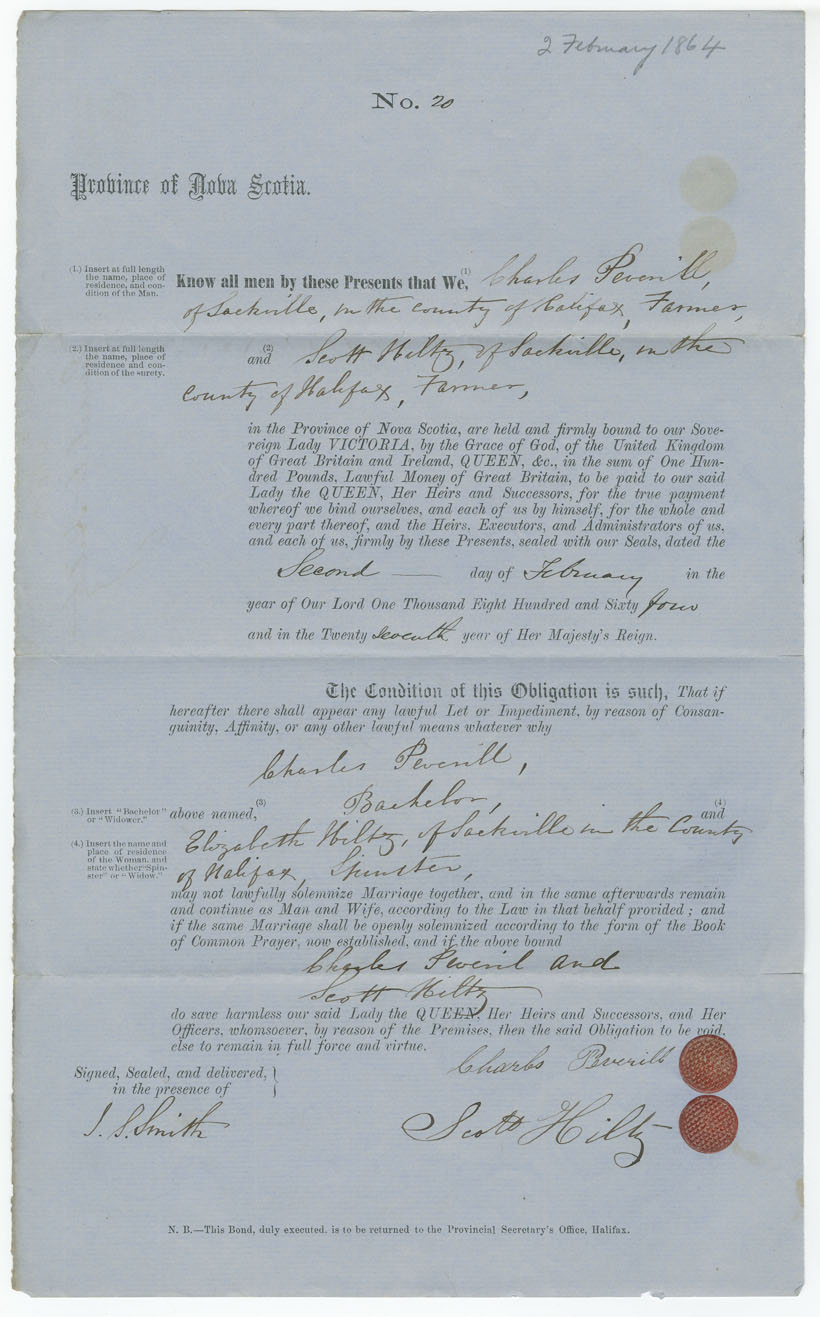 2 February 1864
No. 20
Province of Nova Scotia.
(1.) Insert at full length
the name, place of
residence, and con-
dition of the Man.
Know all men by these Presents that We, (1) Charles Peverill,
of Sackville, in the County of Halifax, Farmer,
(2.) Insert at full length
the name, place of
residence and con-
dition of the surety.
and (2) Scott Hiltz, of Sackville, in the
County of Halifax, Farmer,
in the Province of Nova Scotia, are held and firmly bound to our Sove-
reign Lady VICTORIA, by the Grace of God, of the United Kingdom
of Great Britain and Ireland, QUEEN, &c., in the sum of One Hun-
dred Pounds, Lawful Money of Great Britain, to be paid to our said
Lady the QUEEN, Her Heirs and Successors, for the true payment
whereof we bind ourselves, and each of us by himself, for the whole and
every part thereof, and the Heirs, Executors, and Administrators of us,
and each of us, firmly by these Presents, sealed with our Seals, dated the
Second — day of February in the
year of Our Lord One Thousand Eight Hundred and Sixty four
and in the Twenty seventh year of Her Majesty's Reign.
The Condition of this Obligation is such, That if
hereafter there shall appear any lawful Let or Impediment, by reason of Consan-
guinity, Affinity, or any other lawful means whatever why
Charles Peverill,
(3.) Insert "Bachelor"
or "Widower."
above named, (3) Bachelor, (4) and
(4.) Insert the name and
place of residence
of the Woman, and
state whether "Spin-
ster" or "Widow."
Elizabeth Hiltz, of Sackville in the County
of Halifax, Spinster,
may not lawfully solemnize Marriage together, and in the same afterwards remain
and continue as Man and Wife, according to the Law in that behalf provided ; and
if the same Marriage shall be openly solemnized according to the form of the Book
of Common Prayer, now established, and if the above bound
Charles Peveril and
Scott Hiltz
do save harmless our said Lady the QUEEN, Her Heirs and Successors, and Her
Officers, whomsoever, by reason of the Premises, then the said Obligation to be void,
else to remain in full force and virtue.
Charles Peverill
Signed, Sealed, and delivered,
in the presence of
J. S. Smith
Scott Hiltz
N. B.—This Bond, duly executed. is to be returned to the Provincial Secretary's Office, Halifax.